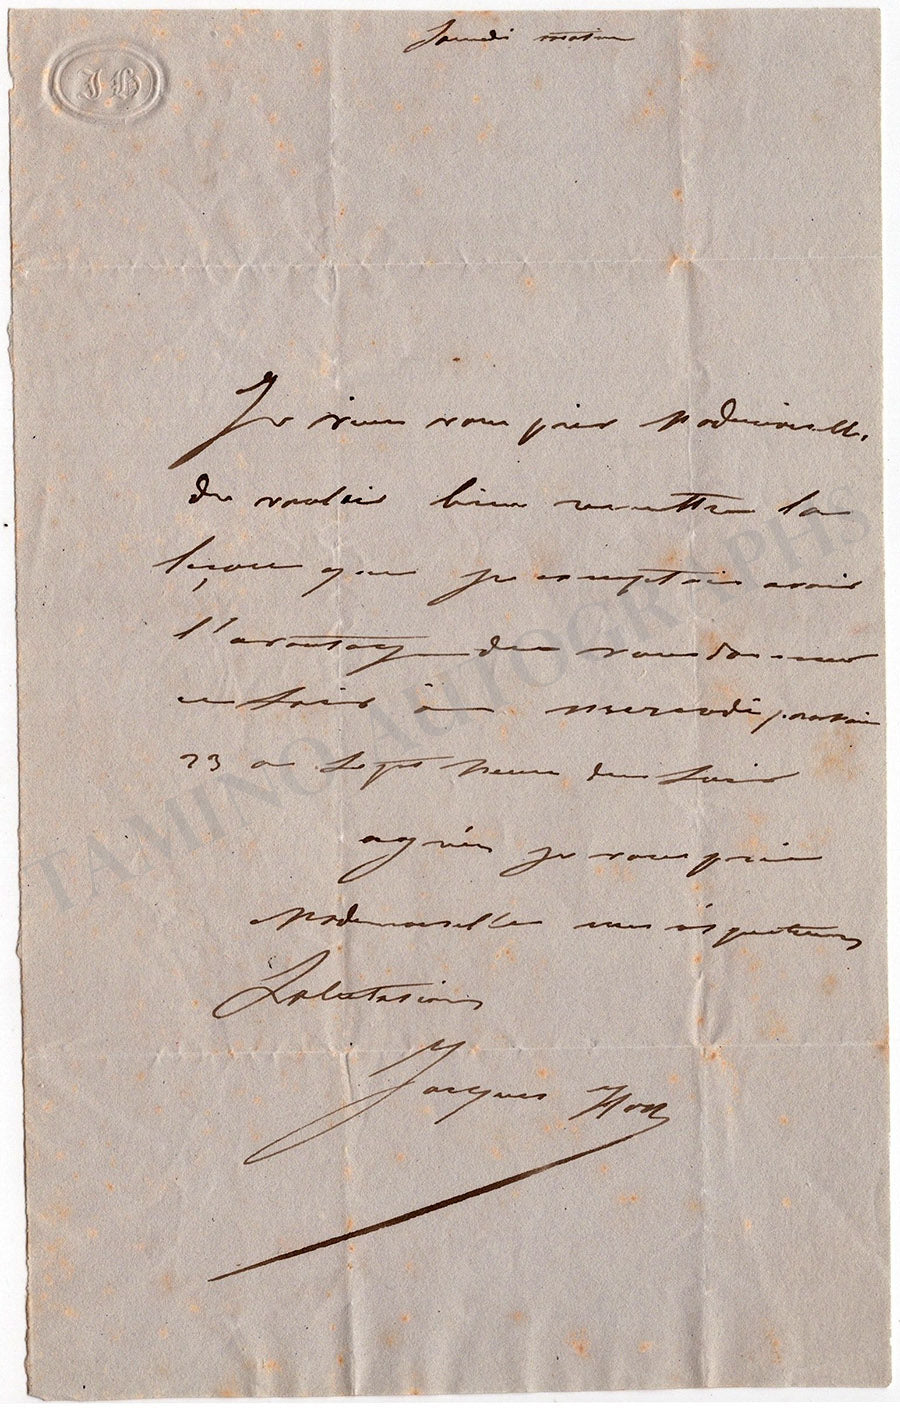 J H
matin
Je viens vous prier Mademoiselle
de vouloir bien remettre la
leçon que je comptais avoir
l'avantage de vous donner
ce soir à mercredi prochain
23 a sept heure du soir
agréez je vous prie
Mademoiselle mes respectueuses
Salutations
Jacques Herz
TAMINO AUTOGRAPHS